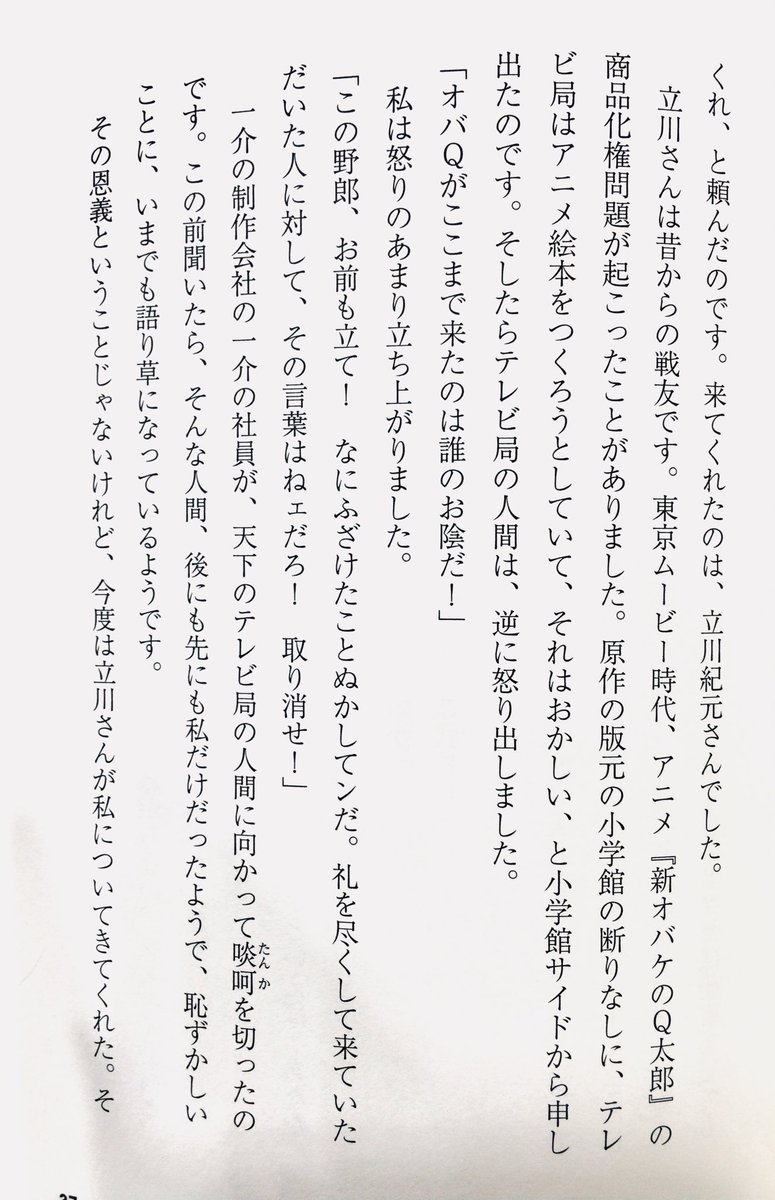 くれ、と頼んだのです。来てくれたのは、立川紀元さんでした。
立川さんは昔からの戦友です。東京ムービー時代、アニメ『新オバケのQ太郎』の
商品化権問題が起こったことがありました。原作の版元の小学館の断りなしに、テレ
ビ局はアニメ絵本をつくろうとしていて、それはおかしい、と小学館サイドから申し
出たのです。そしたらテレビ局の人間は、逆に怒り出しました。
「オバQがここまで来たのは誰のお陰だ！」
私は怒りのあまり立ち上がりました。
「この野郎、お前も立て！　なにふざけたことぬかしてンだ。礼を尽くして来ていた
だいた人に対して、その言葉はねェだろ！　取り消せ！」
一介の制作会社の一介の社員が、天下のテレビ局の人間に向かって啖呵たんかを切ったの
です。この前聞いたら、そんな人間、後にも先にも私だけだったようで、恥ずかしい
ことに、いまでも語り草になっているようです。
その恩義ということじゃないけれど、今度は立川さんが私についてきてくれた。そ